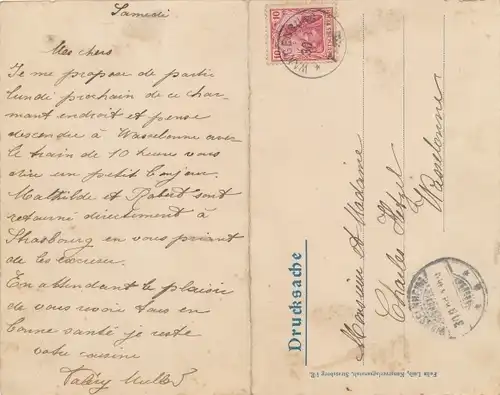 Samedi
Mes chers
Je me propose de partir
lundi prochain de ce char-
mant endroit et pense
descendre à Wasselonne avec
le train de 10 heures vous
dire un petit bonjour.
Mathilde et Robert sont
retourné directement à
Strasbourg en vous priant
de les excuser.
En attendant le plaisir
de vous revoir tous en
bonne santé je reste
votre cousine
Valéry Muller
10
10
Drucksache
Monsieur et Madame
Charles Hetzel
à
Wasselonne